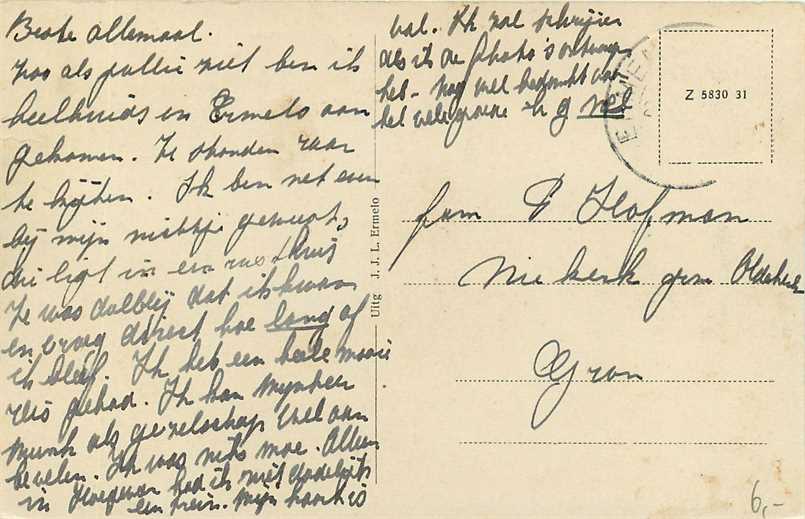 Beste allemaal.
zoo als jullie ziet ben ik
heelhuids in Ermelo aan
gekomen. Ze stonden raar
te kijken. Ik ben net even
bij mijn nichtje geweest,
die ligt in een rusthuis
Ze was dolblij dat ik kwam
en vroeg direct hoe lang of
ik bleef. Ik heb een heele mooie
reis gehad. Ik kan Mijnheer
Munk als gezelschap wel aan
bevelen. Ik was niets moe. Alleen
in Hoogeveen had ik niet dadelijk
een trein. Mijn kaart is
vol. Ik zal schrijven
als ik de photo's ontvangen
heb. Nog wel bedankt voor
het vele goede
Z 5830 31
Uitg J. J. L. Ermelo
fam P Hofman
Niekerk gem Oldekerk
Gron
6,-